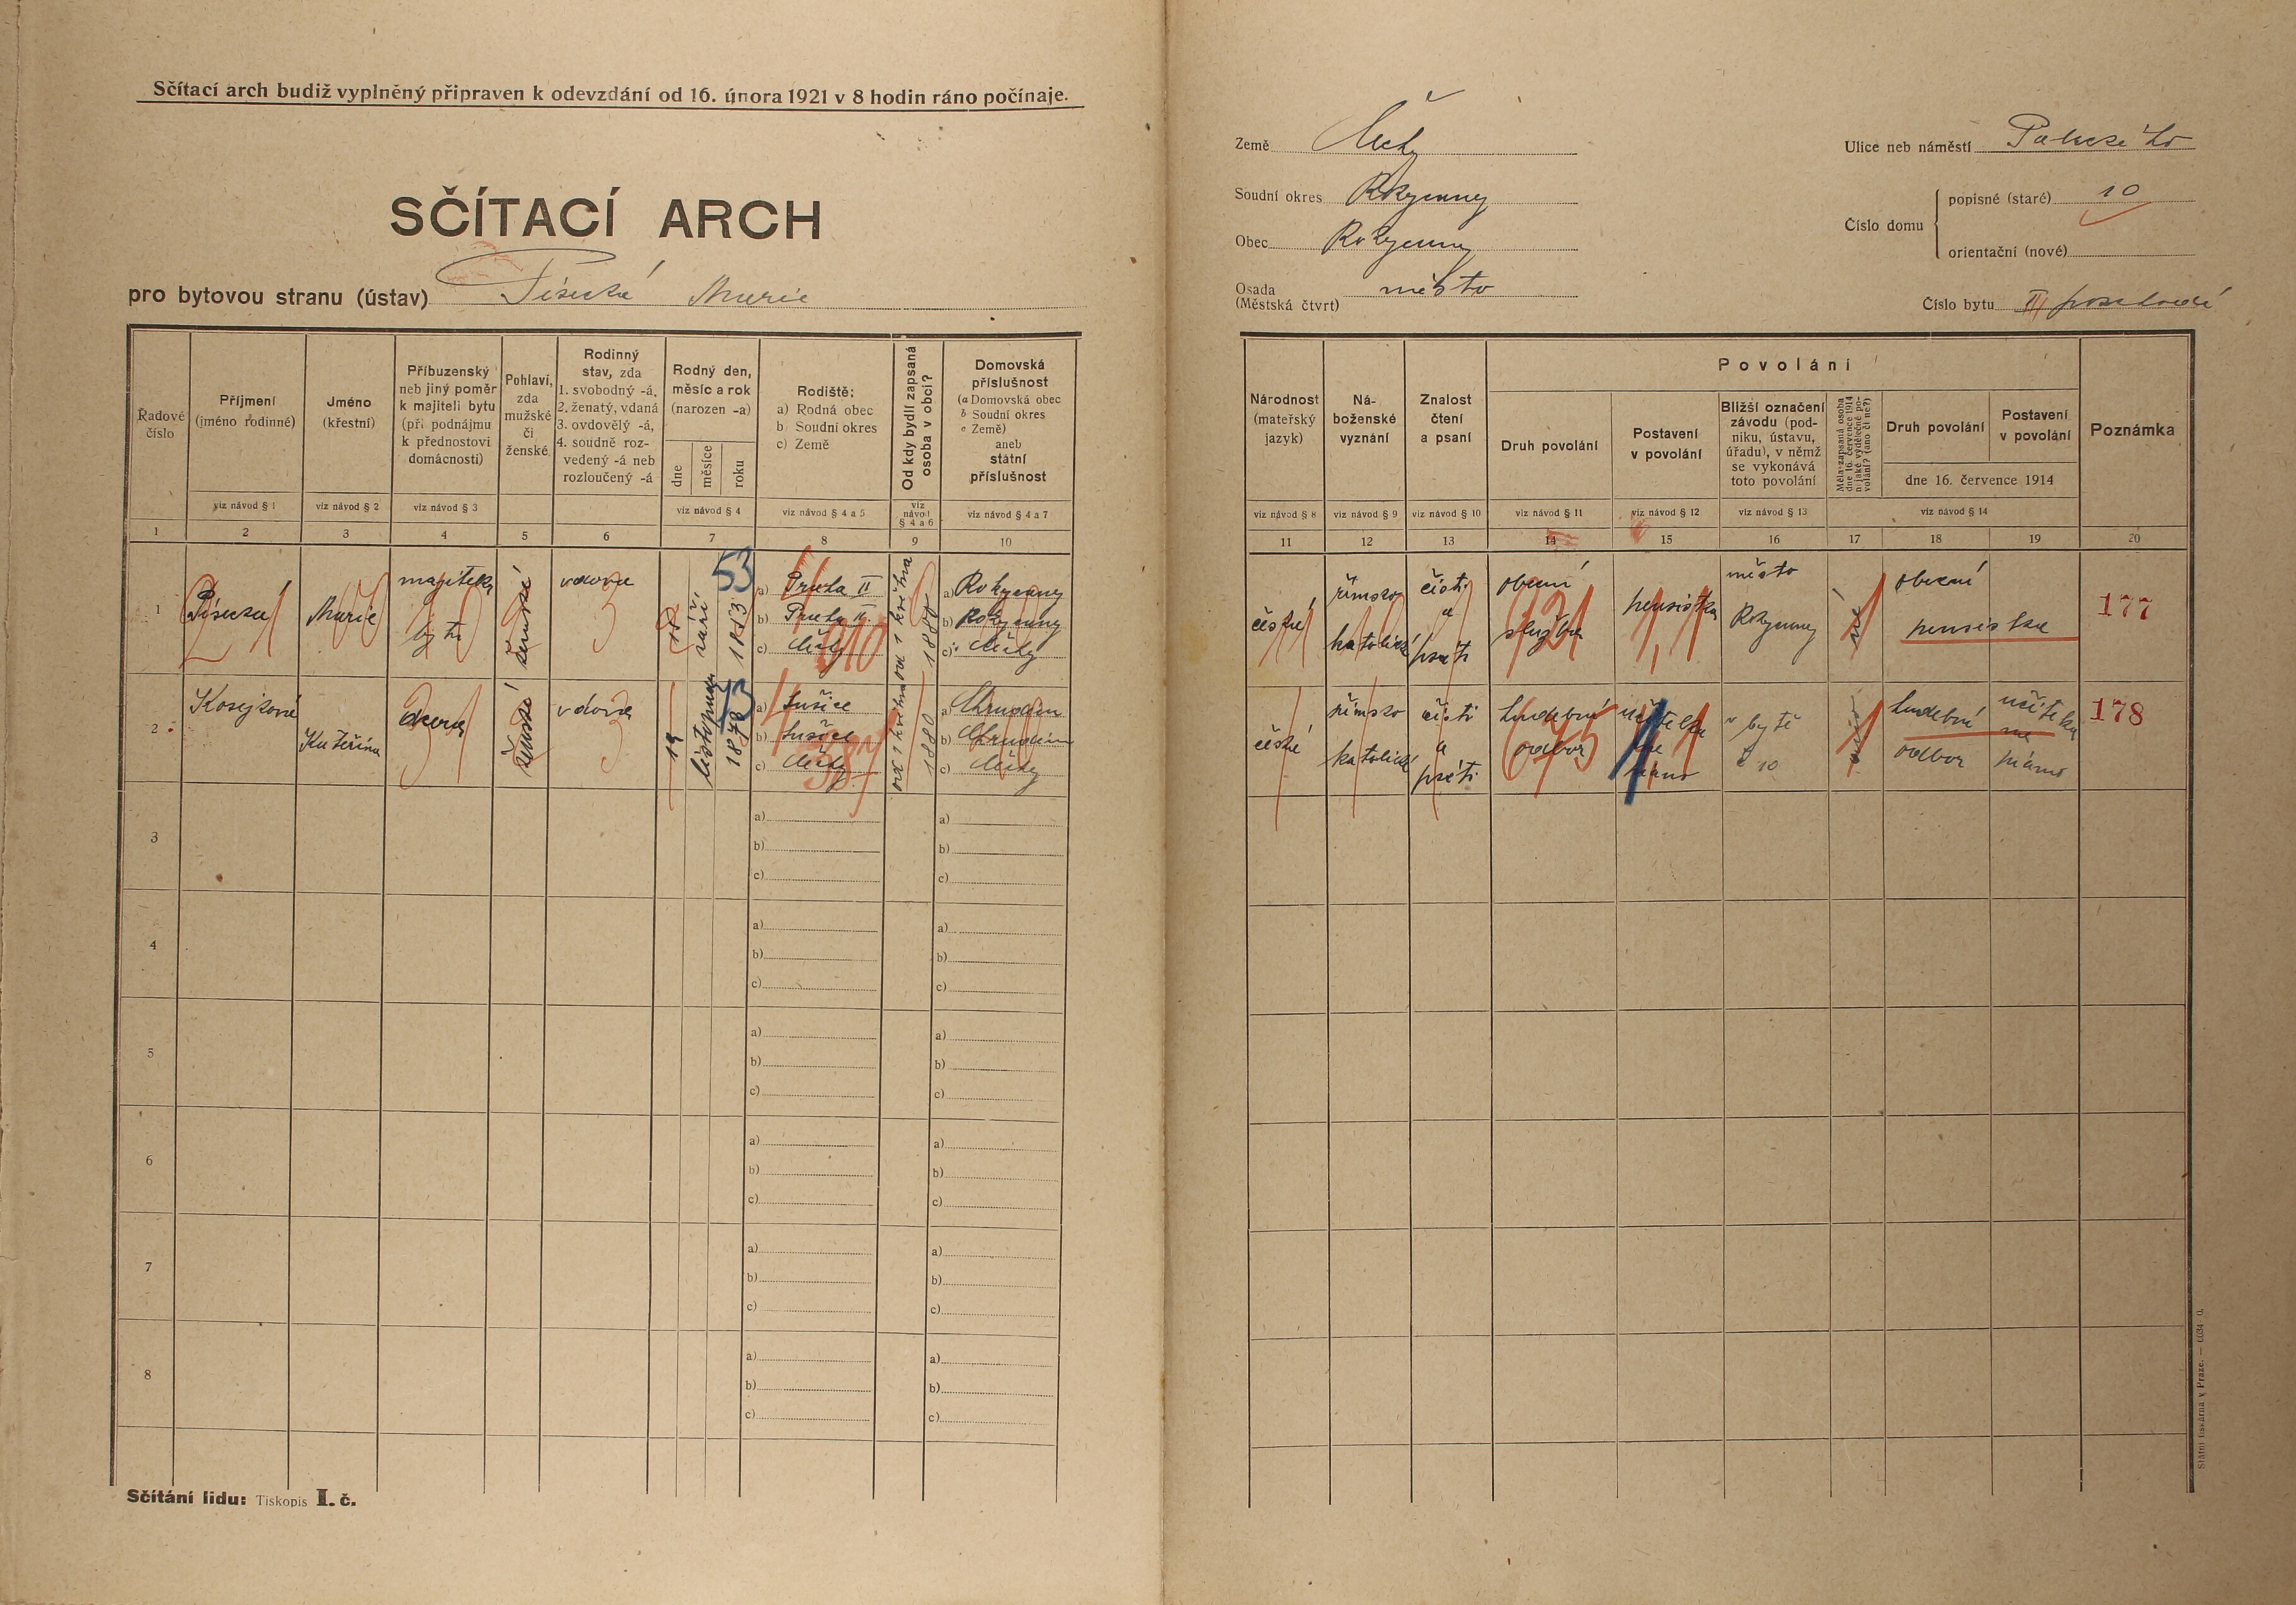 Sčítací arch budiž vyplněný připraven k odevzdání od 16. února 1921 v 8 hodin ráno počínaje.
SČÍTACÍ ARCH
pro bytovou stranu (ústav) Písecká Marie
Země Čechy
Soudní okres Rokycany
Obec Rokycany
Osada
(Městská čtvrt) město
Ulice neb náměstí
Číslo domu
popisné (staré) 10
orientační (nové)
Číslo bytu II
Řadové
číslo
1
Příjmení
(jméno rodinné)
viz návod § 1
2
Jméno
(křestní)
viz návod § 2
3
Příbuzenský
neb jiný poměr
k majiteli bytu
(při podnájmu
k přednostovi
domácnosti)
viz návod § 3
4
Pohlaví,
zda
mužské
či
ženské
5
Rodinný
stav, zda
1. svobodný -á,
2. ženatý, vdaná
3. ovdovělý -á,
4. soudně roz-
vedený -á neb
rozloučený -á
6
Rodný den,
měsíc a rok
(narozen -a)
dne
měsíce
roku
viz návod § 4
7
Rodiště:
a) Rodná obec
b) Soudní okres
c) Země
viz návod § 4 a 5
8
Od kdy bydlí zapsaná
osoba v obci?
viz
návod
§ 4 a 6
9
Domovská
příslušnost
(a Domovská obec
b Soudní okres
c Země)
aneb
státní
příslušnost
viz návod § 4 a 7
10
Národnost
(mateřský
jazyk)
viz návod § 8
11
Ná-
boženské
vyznání
viz návod § 9
12
Znalost
čtení
a psaní
viz návod § 10
13
Povolání
Druh povolání
viz návod § 11
14
Postavení
v povolání
viz návod § 12
15
Bližší označení
závodu (pod-
niku, ústavu,
úřadu), v němž
se vykonává
toto povolání
viz návod § 13
16
Měla zapsaná osoba
dne 16. července 1914
nějaké výdělečné po-
volání? (ano či ne?)
17
Druh povolání
Postavení
v povolání
dne 16. července 1914
viz návod § 14
18
19
Poznámka
20
1
Písecká
Marie
majitelka
bytu
ženské
vdova
18
září
1853
53
a) Praha II
b) Praha II
c) Čechy
od 1 května
1880
a) Rokycany
b) Rokycany
c) Čechy
české
římsko
katolické
čísti
a
psáti
obecní
služba
pensistka
město
Rokycany
ne
obecní
pensistka
177
2
Kosejková
Kateřina
dcera
ženské
vdova
19
listopadu
1878
a) Sušice
b) Sušice
c) Čechy
od 1 května
1880
a) Chrudim
b) Chrudim
c) Čechy
české
římsko
katolické
čísti
a
psáti
hudební
odbor
učitelka
na
piano
v bytě
č 10
ano
hudební
odbor
učitelka
na
piano
178
3
a)
b)
c)
a)
b)
c)
4
a)
b)
c)
a)
b)
c)
5
a)
b)
c)
a)
b)
c)
6
a)
b)
c)
a)
b)
c)
7
a)
b)
c)
a)
b)
c)
8
a)
b)
c)
a)
b)
c)
Sčítání lidu: Tiskopis I. č.
Státní tiskárna v Praze.